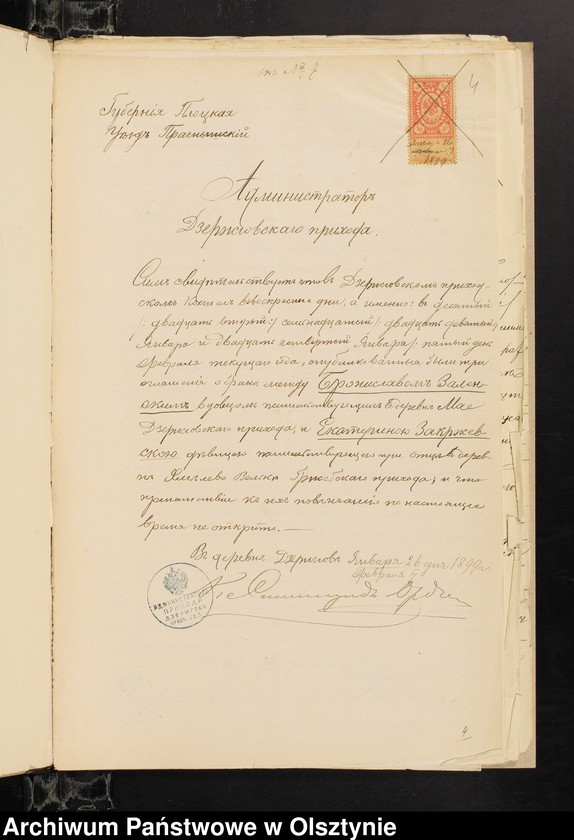 къ № 7
4
Губернія Плоцкая
Уѣздъ Праснышскій
1899
Администраторъ
Дзержговскаго прихода.
Симъ свидѣтельствуетъ что въ Дзержговскомъ приход-
скомъ Костелѣ въ воскресные дни, а именно: въ десятый
/: двадцать вторый :/ семнадцатый /: двадцать девятый
Января и двадцать четвертый Января /: пятый дек
Февраля текущаго года, опубликованы были три
оглашенія о бракѣ между Брониславомъ Зален-
скимъ вдовцомъ жительствующимъ въ деревнѣ
Дзержговскаго прихода, и Екатериною Закржев-
скою дѣвицею жительствующею при отцѣ въ дерев-
нѣ прихода, и что
препятствій къ ихъ повѣнчанію по настоящее
время не открыто. —
Въ деревнѣ Дзержговѣ Января 26 дня 1899 г.
Февраля 7
АДМИНИСТРАТОРЪ
ПРИХОДА
ДЗЕРЖГОВО
4
Archiwum Państwowe w Olsztynie